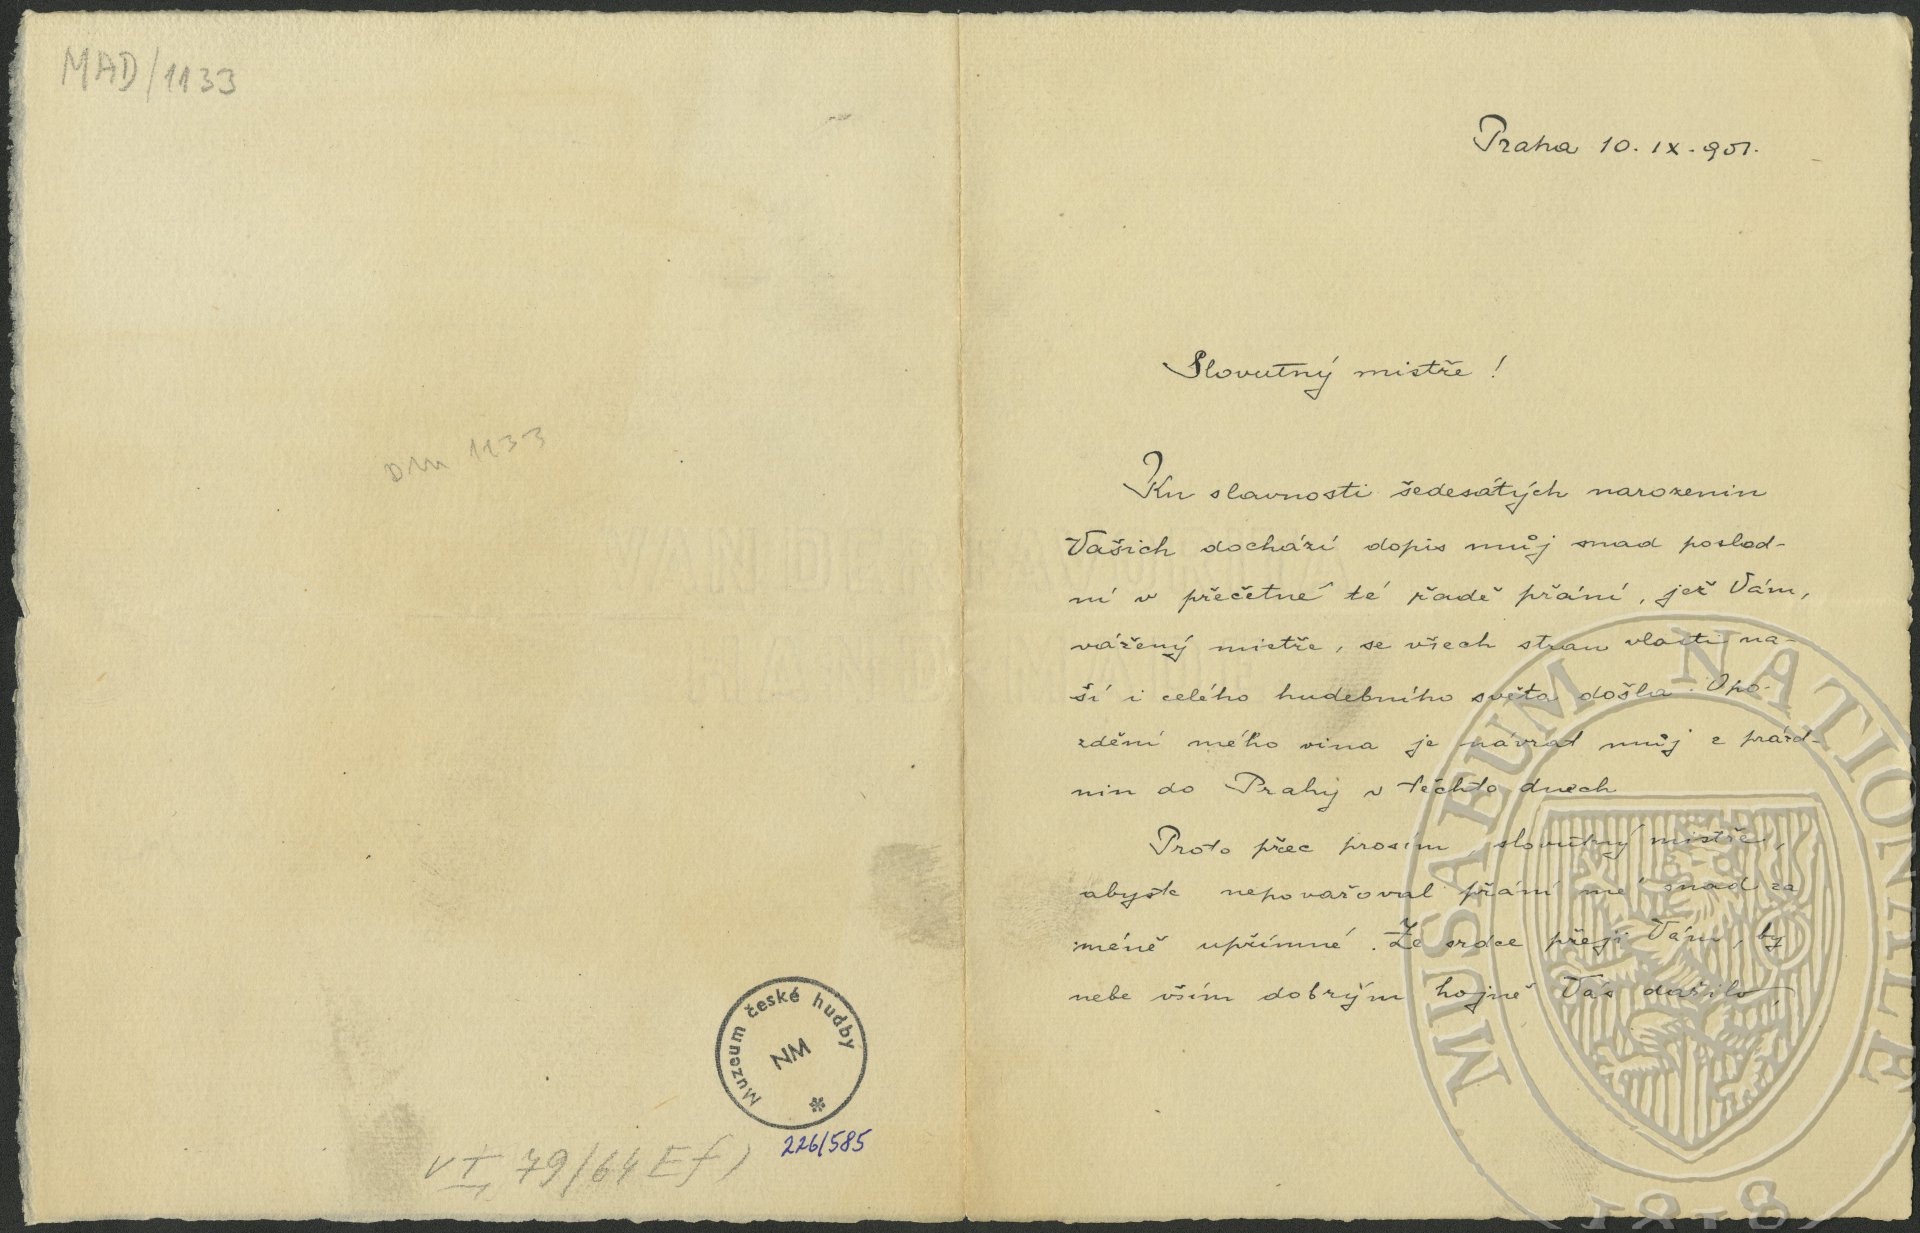 MAD/1133
DM 1133
Muzeum české hudby
NM
226/585
VI, 79/64 Ef)
Praha 10. IX. 901.
Slovutný mistře!
Ku slavnosti šedesátých narozenin
Vašich dochází dopis můj snad posled-
ní v přečetné té řadě přání, jež Vám,
vážený mistře, se všech stran vlasti na-
ší i celého hudebního světa došla. Opo-
zdění mého vina je návrat můj z prázd-
nin do Prahy v těchto dnech
Proto přec prosím, slovutný mistře,
abyste nepovažoval přání mé snad za
méně upřímné. Ze srdce přeji Vám, by
nebe vším dobrým hojně Vás dařilo,
MUSAEUM NATIONALE
1818